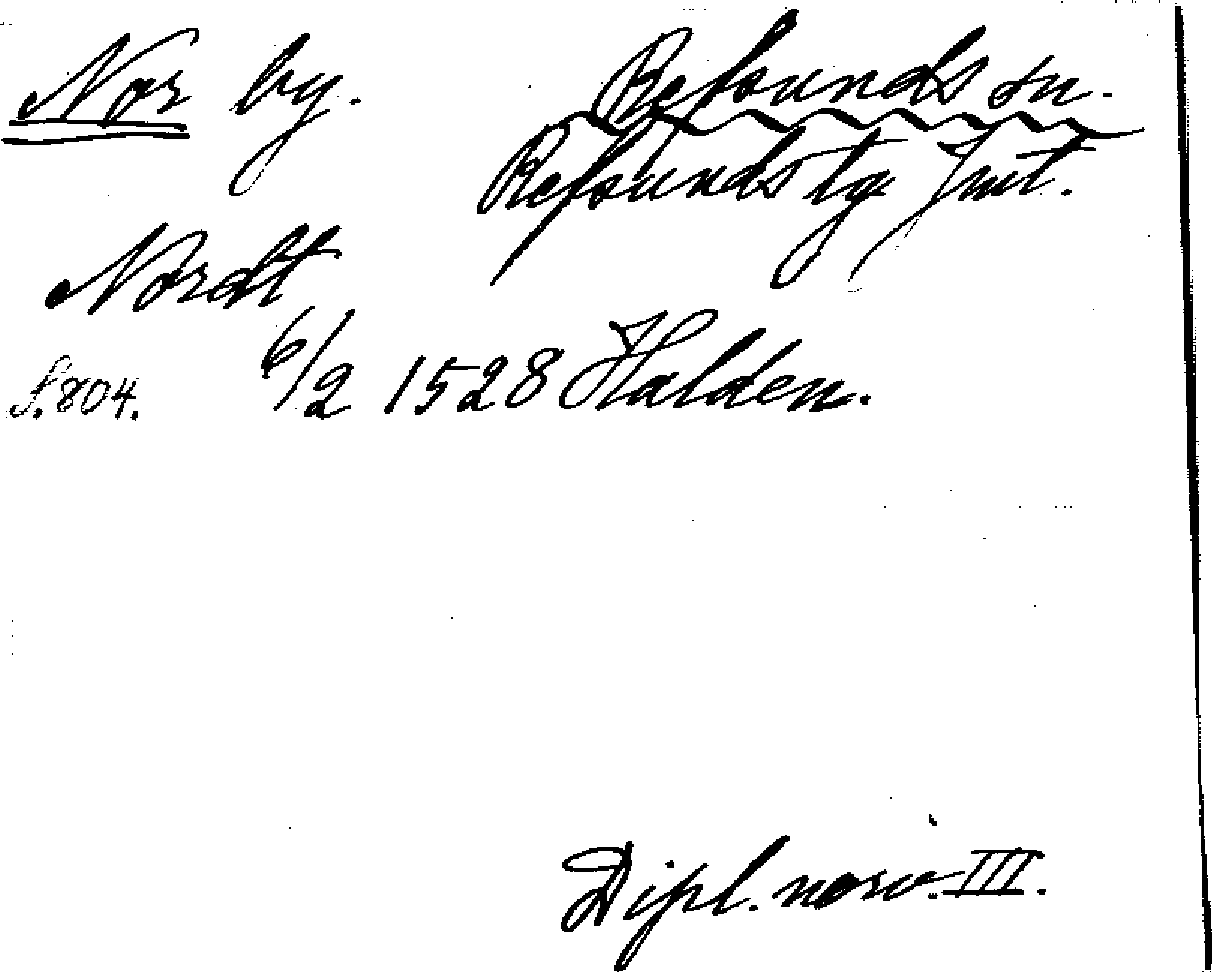 Nor by. Refsunds sn.
Refsunds tg Jmt.
Nordt
s. 804. 6/2 1528 Halden.
Dipl. norv. III.